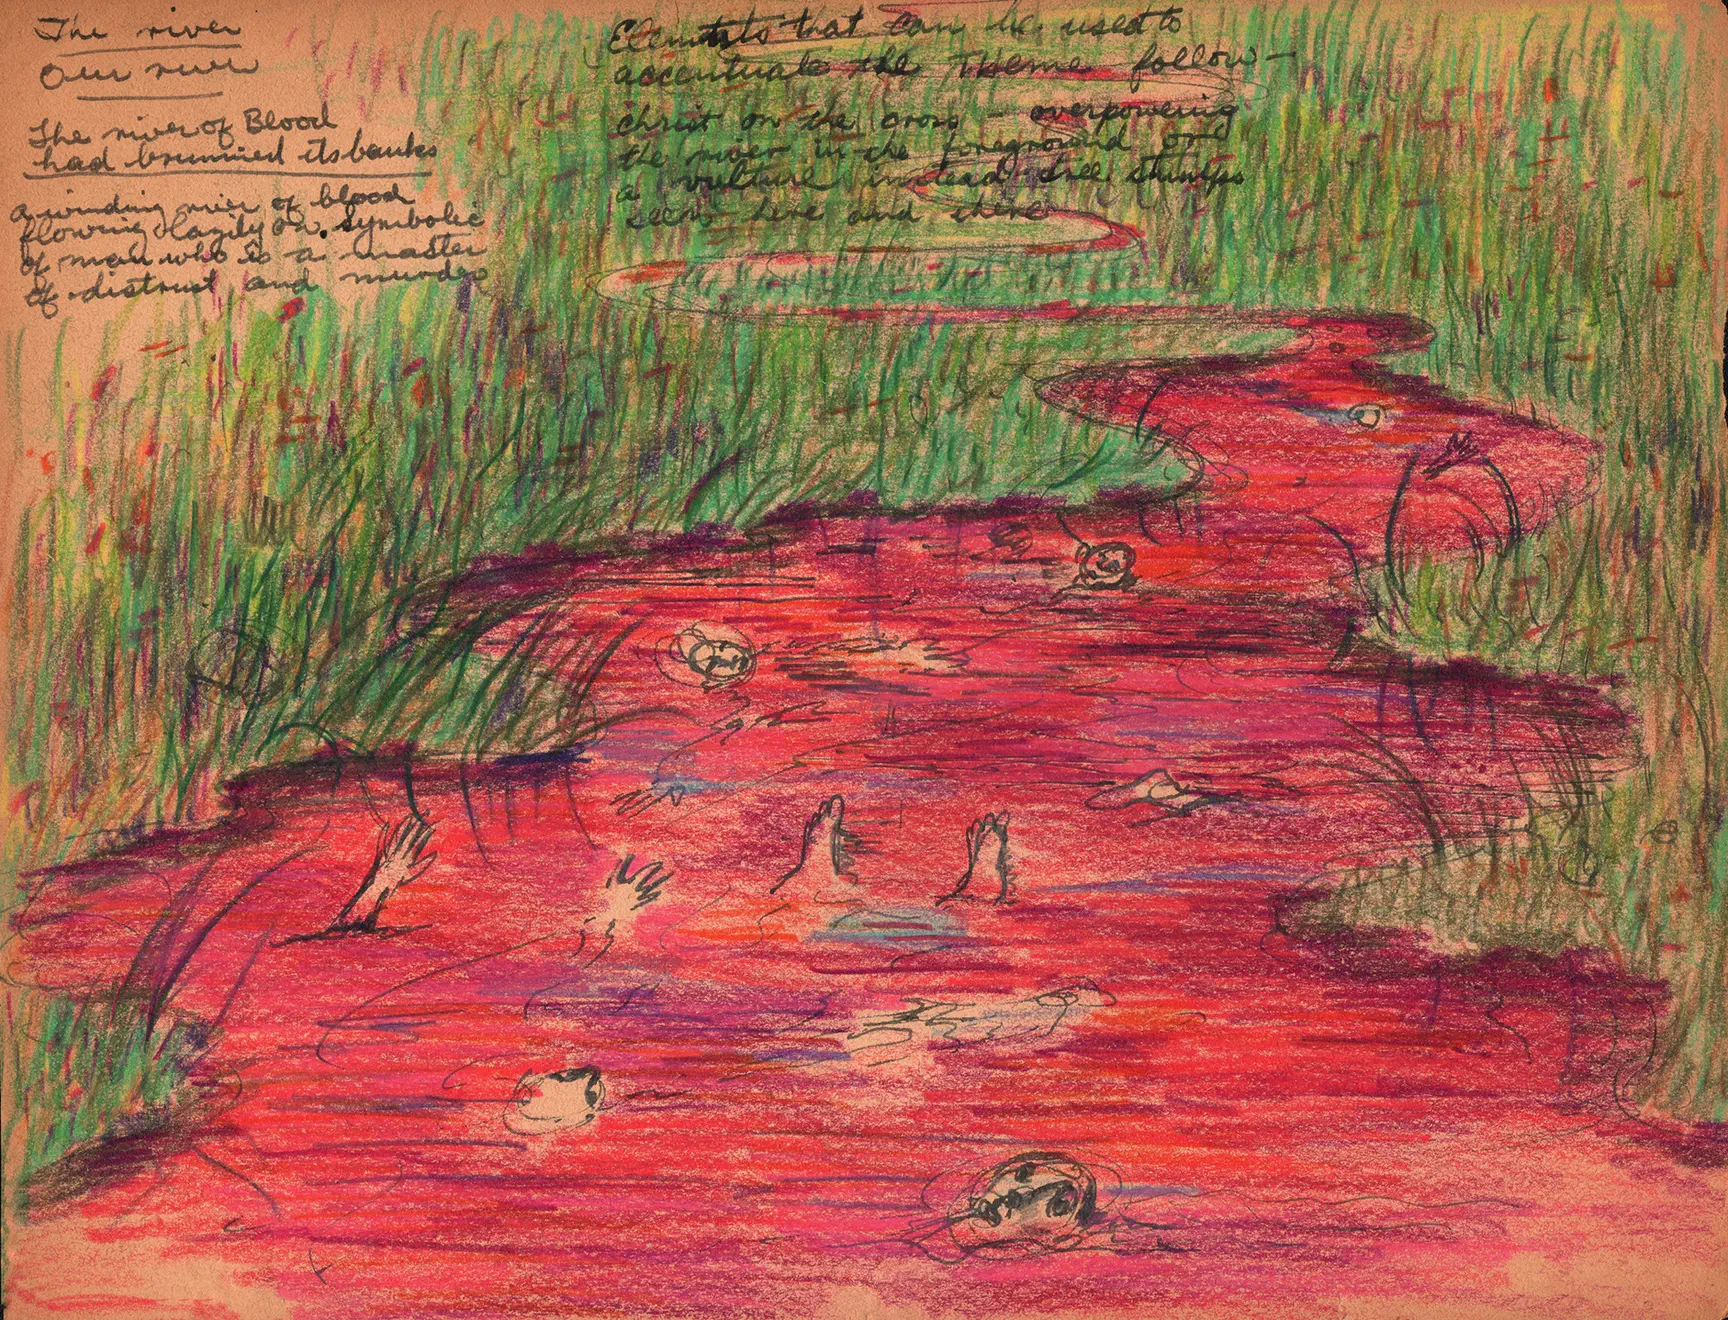 The river
Our river
The river of Blood
had brimmed its banks
a winding river of blood
flowing lazily on. symbolic
of man who is a master
of distrust and murder
Elements that can be used to
accentuate the Theme follow—
christ on the cross — overpowering
the river in the foreground or
a vulture instead tree stumps
seen here and there